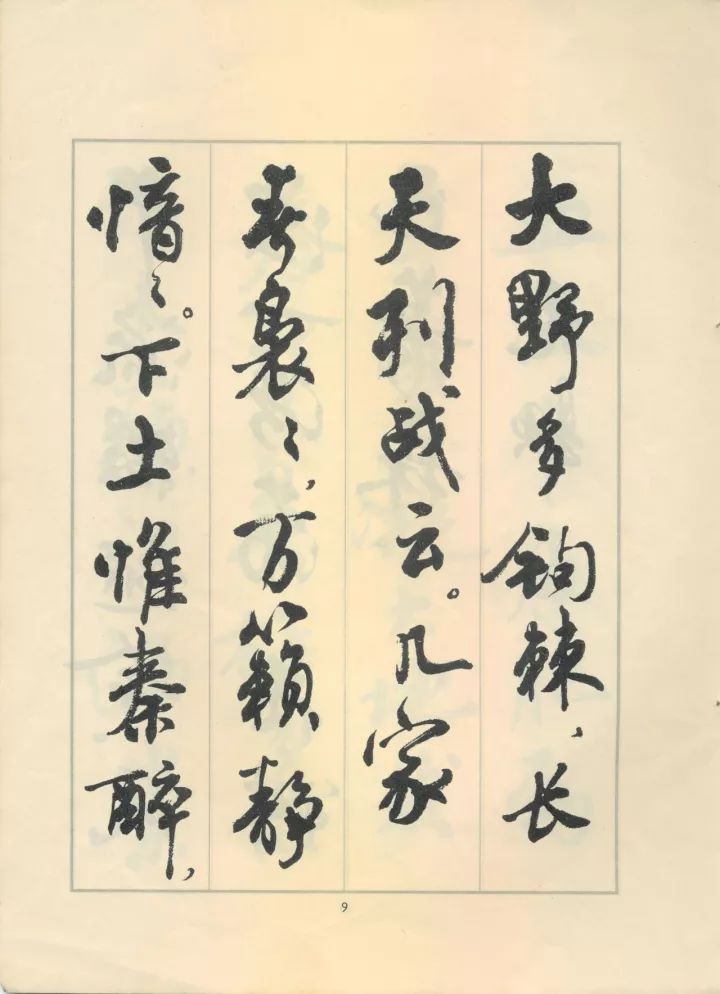 大野多鉤棘、长
天列战云。几家
春袅々，万籁静
愔々。下土惟秦醉，
9